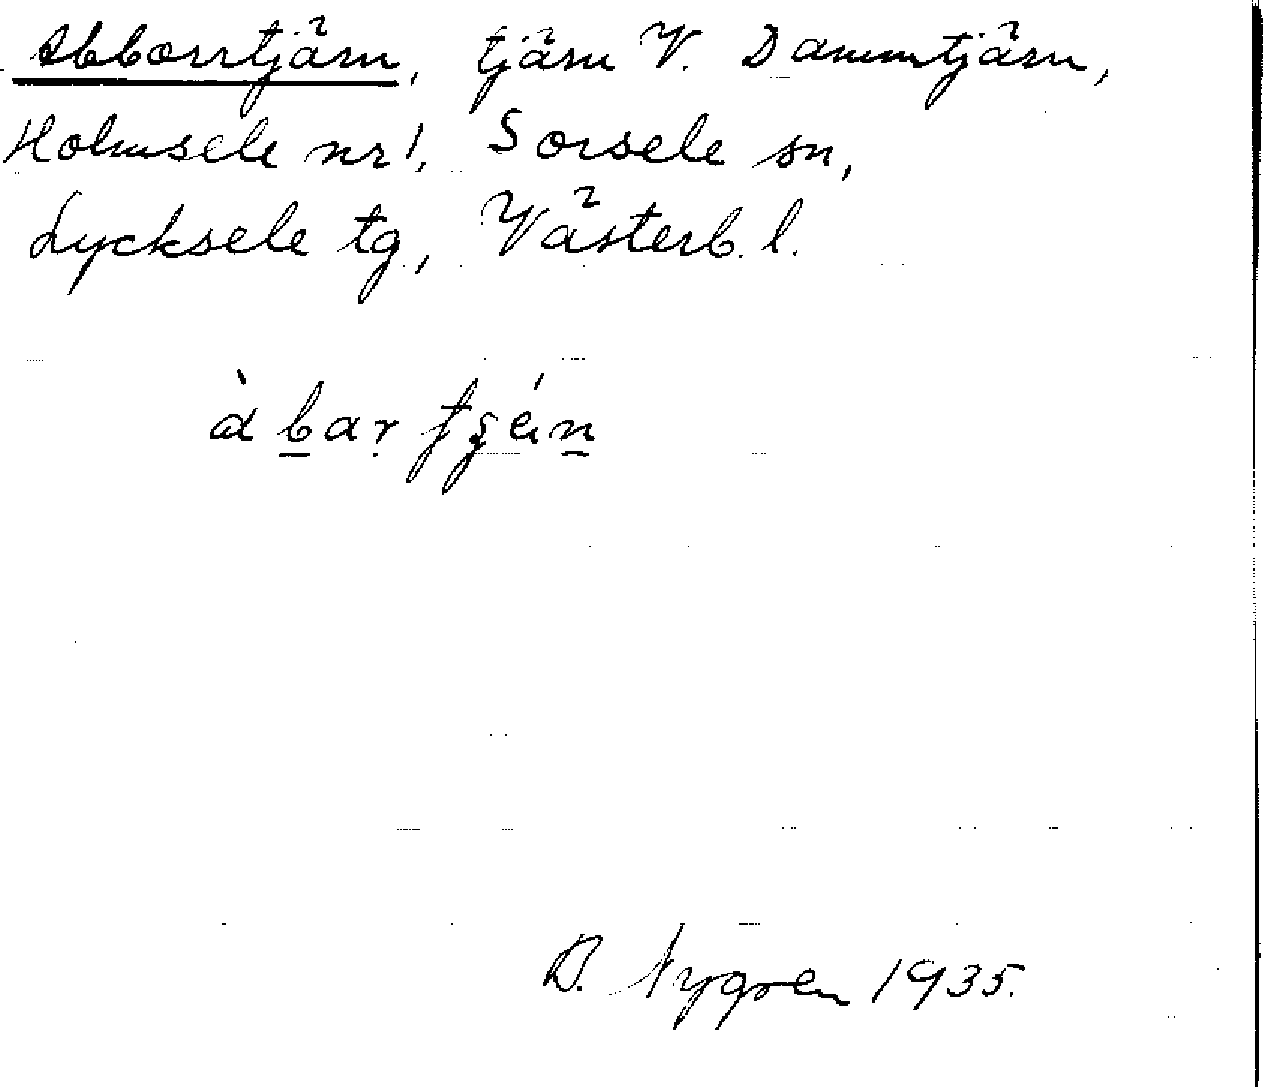 Abborrtjärn, tjärn V. Dammtjärn,
Holmsele nr 1, Sorsele sn,
Lycksele tg, Västerb. l.
D. Nygren 1935.